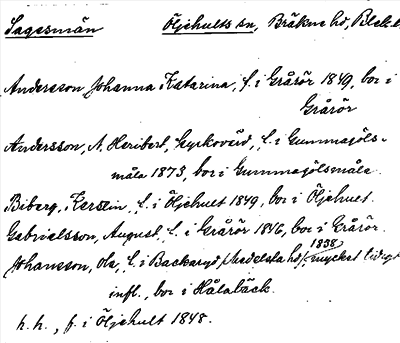 Sagesmän Öljehults sn, Bräkne hd, Blek.
Andersson Johanna Katarina, f. i Grårör 1849, bor i
Grårör
Andersson, A. Heribert, kyrkovärd, f. i Gummagöls-
måla 1873, bor i Gummagölsmåla.
Biberg, Kerstin, f. i Öljehult 1849, bor i Öljehult.
Gabrielsson, August, f. i Grårör 1846, bor i Grårör.
Johansson, Ola, f. i Backaryd, Medelsta hd, 1838 mycket tidigt
infl., bor i Hålabäck.
h. h., f. i Öljehult 1848.